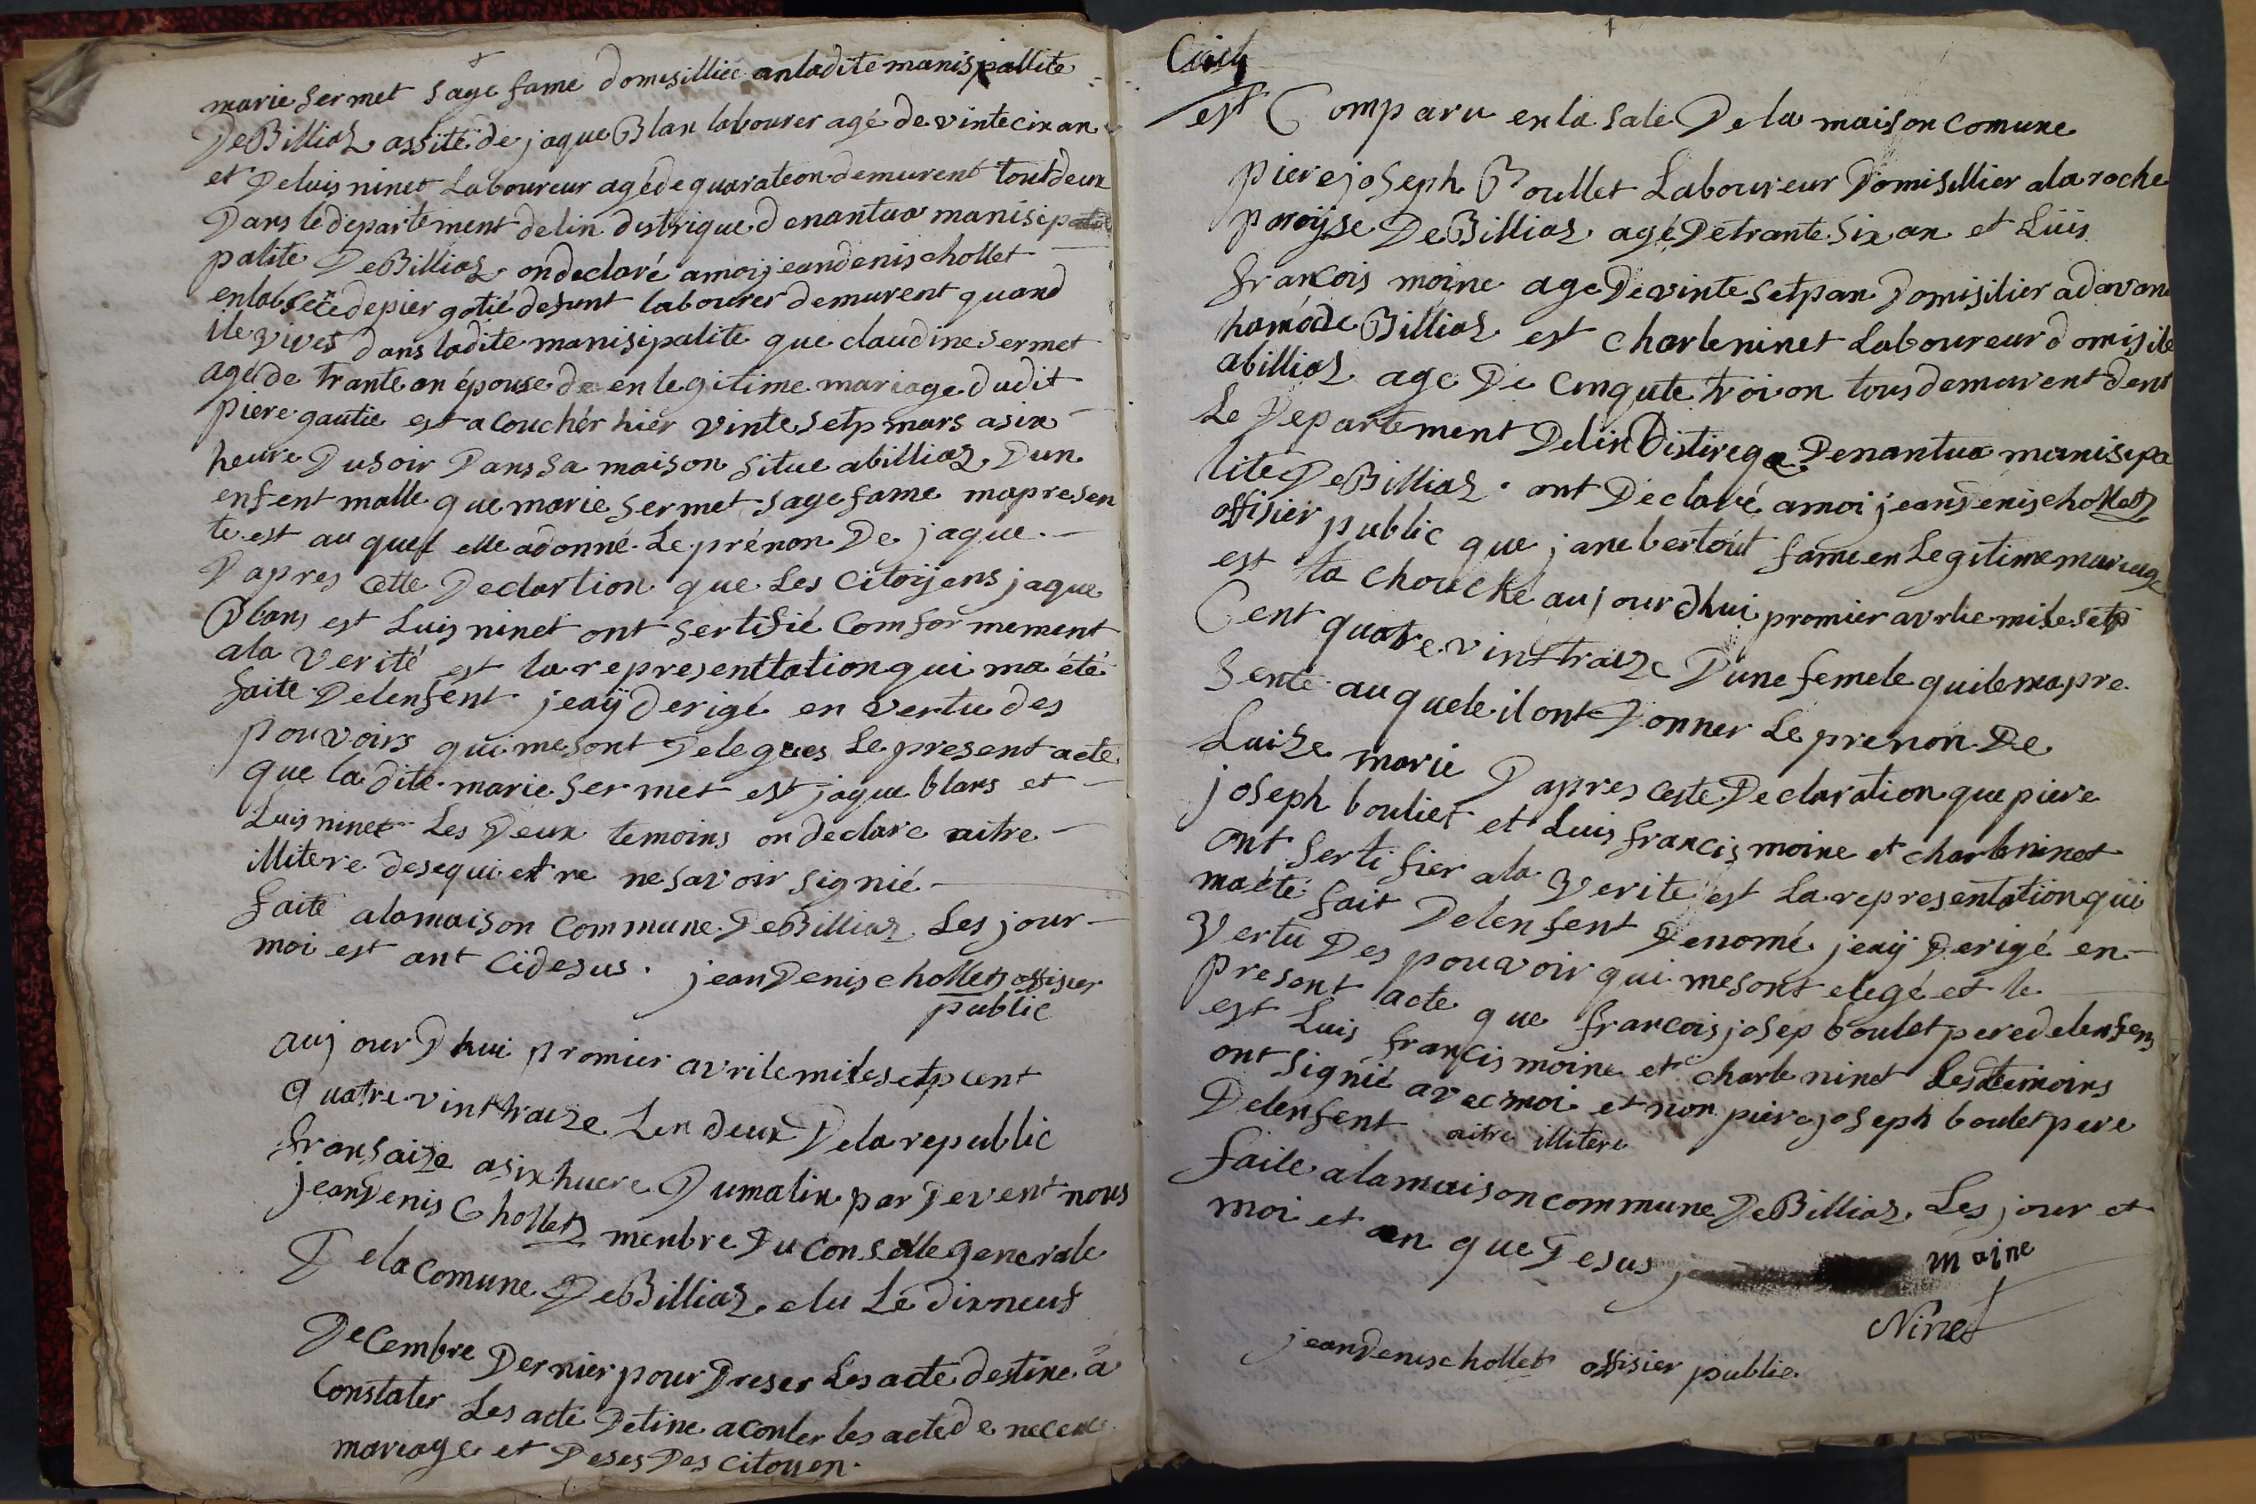 marie sermet sage fame domisilliée anladite manispallite
De Billiaz assité de jaque Blan labourer agé de vintecin an
et De luis ninet Laboureur agé de quarateon demurent tout deux
Dans le departement de lin distrique denantua manisipalité
palite De Billiaz on declaré amoi jean denis chollet
enlabsece de pier gotié defunt labourer demurent quand
ile vives dans ladite manisipalite que claudine sermet
agé de trante an épouse de en legitime mariage dudit
piere gautie est a couchér hier vinte setp mars asix
heure Dusoir Dans sa maison situe abilliaz Dun
enfent malle que marie sermet sage fame mapresen
te est au quel elle adonné Le prénon De jaque.
Dapres cette Declartion que Les citoijens jaque
Blans est Luis ninet ont sertifié Comformement
ala verité est la representtation qui ma été
faite Delenfent jeaÿ derigé en vertu des
pouvoirs qui mesont Delegues Le present acte
que la dite marie sermet est jaque blans et
Luis ninet Les Deux temoins on declare aitre
illitere desequi etre ne savoir signié
faite alamaison Commune De Billiaz Les jour
moi est ant cidesus. jean Denis chollet offisier
public
aujourDhui promier avrile mile setp cent
quatre vint traize Len deux Dela republic
fransaize asix huere Dumatin par Devent nous
jean Denis Chollet menbre Du Conselle generale
Dela Comune De Billiaz elu Le dixneuf
Decembre Dernier pour Dreser Les acte destine à
Constater Les acte Detine aconter les acte de necence
mariage et Deses Des citoyen.
est Comparu en la sale Dela maison comune
piere joseph Boullet Laboureur Domisillier alaroche
paroijse De Billiaz agé Detrante six an et Luis
francois moine age De vinte setp an Domisilier adavane
hamó de Billiaz est charle ninet Laboureur domisile
abilliaz age De cinqute troi on tous demurent dent
Le Departement Delin Distireqe Denantua manisipa
lite De Billiaz. ont Declaré amoi jean Denis chollet
offisier public que jane bertout fame en Legitime mariage
est ta choucke aujourdhui promier avrlie mile setp
Cent quatre vint traize Dune femele quile mapre
sente auquele il ont Donner Le prenon De
Luize marie Dapres ceste Declaration que piere
joseph bouliet et Luis francis moine et charle ninet
ont sertifier ala verite est La representation qui
maété fait Delenfent Denomé jeaÿ Derigé en
vertu Des pouvoir qui mesont elegé et le
present acte que francois josep boulet pere delenfens
est Luis francis moine et charle ninet Les temoins
ont signié avec moi et non piere joseph boulet pere
Delenfent aitre illitere
faite alamaison commune De Billiaz Les jour et
moi et an que Desus
maine
Ninet
jean Denis chollet offisier public